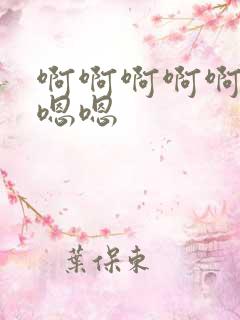 啊啊啊啊啊
嗯嗯
葉保東